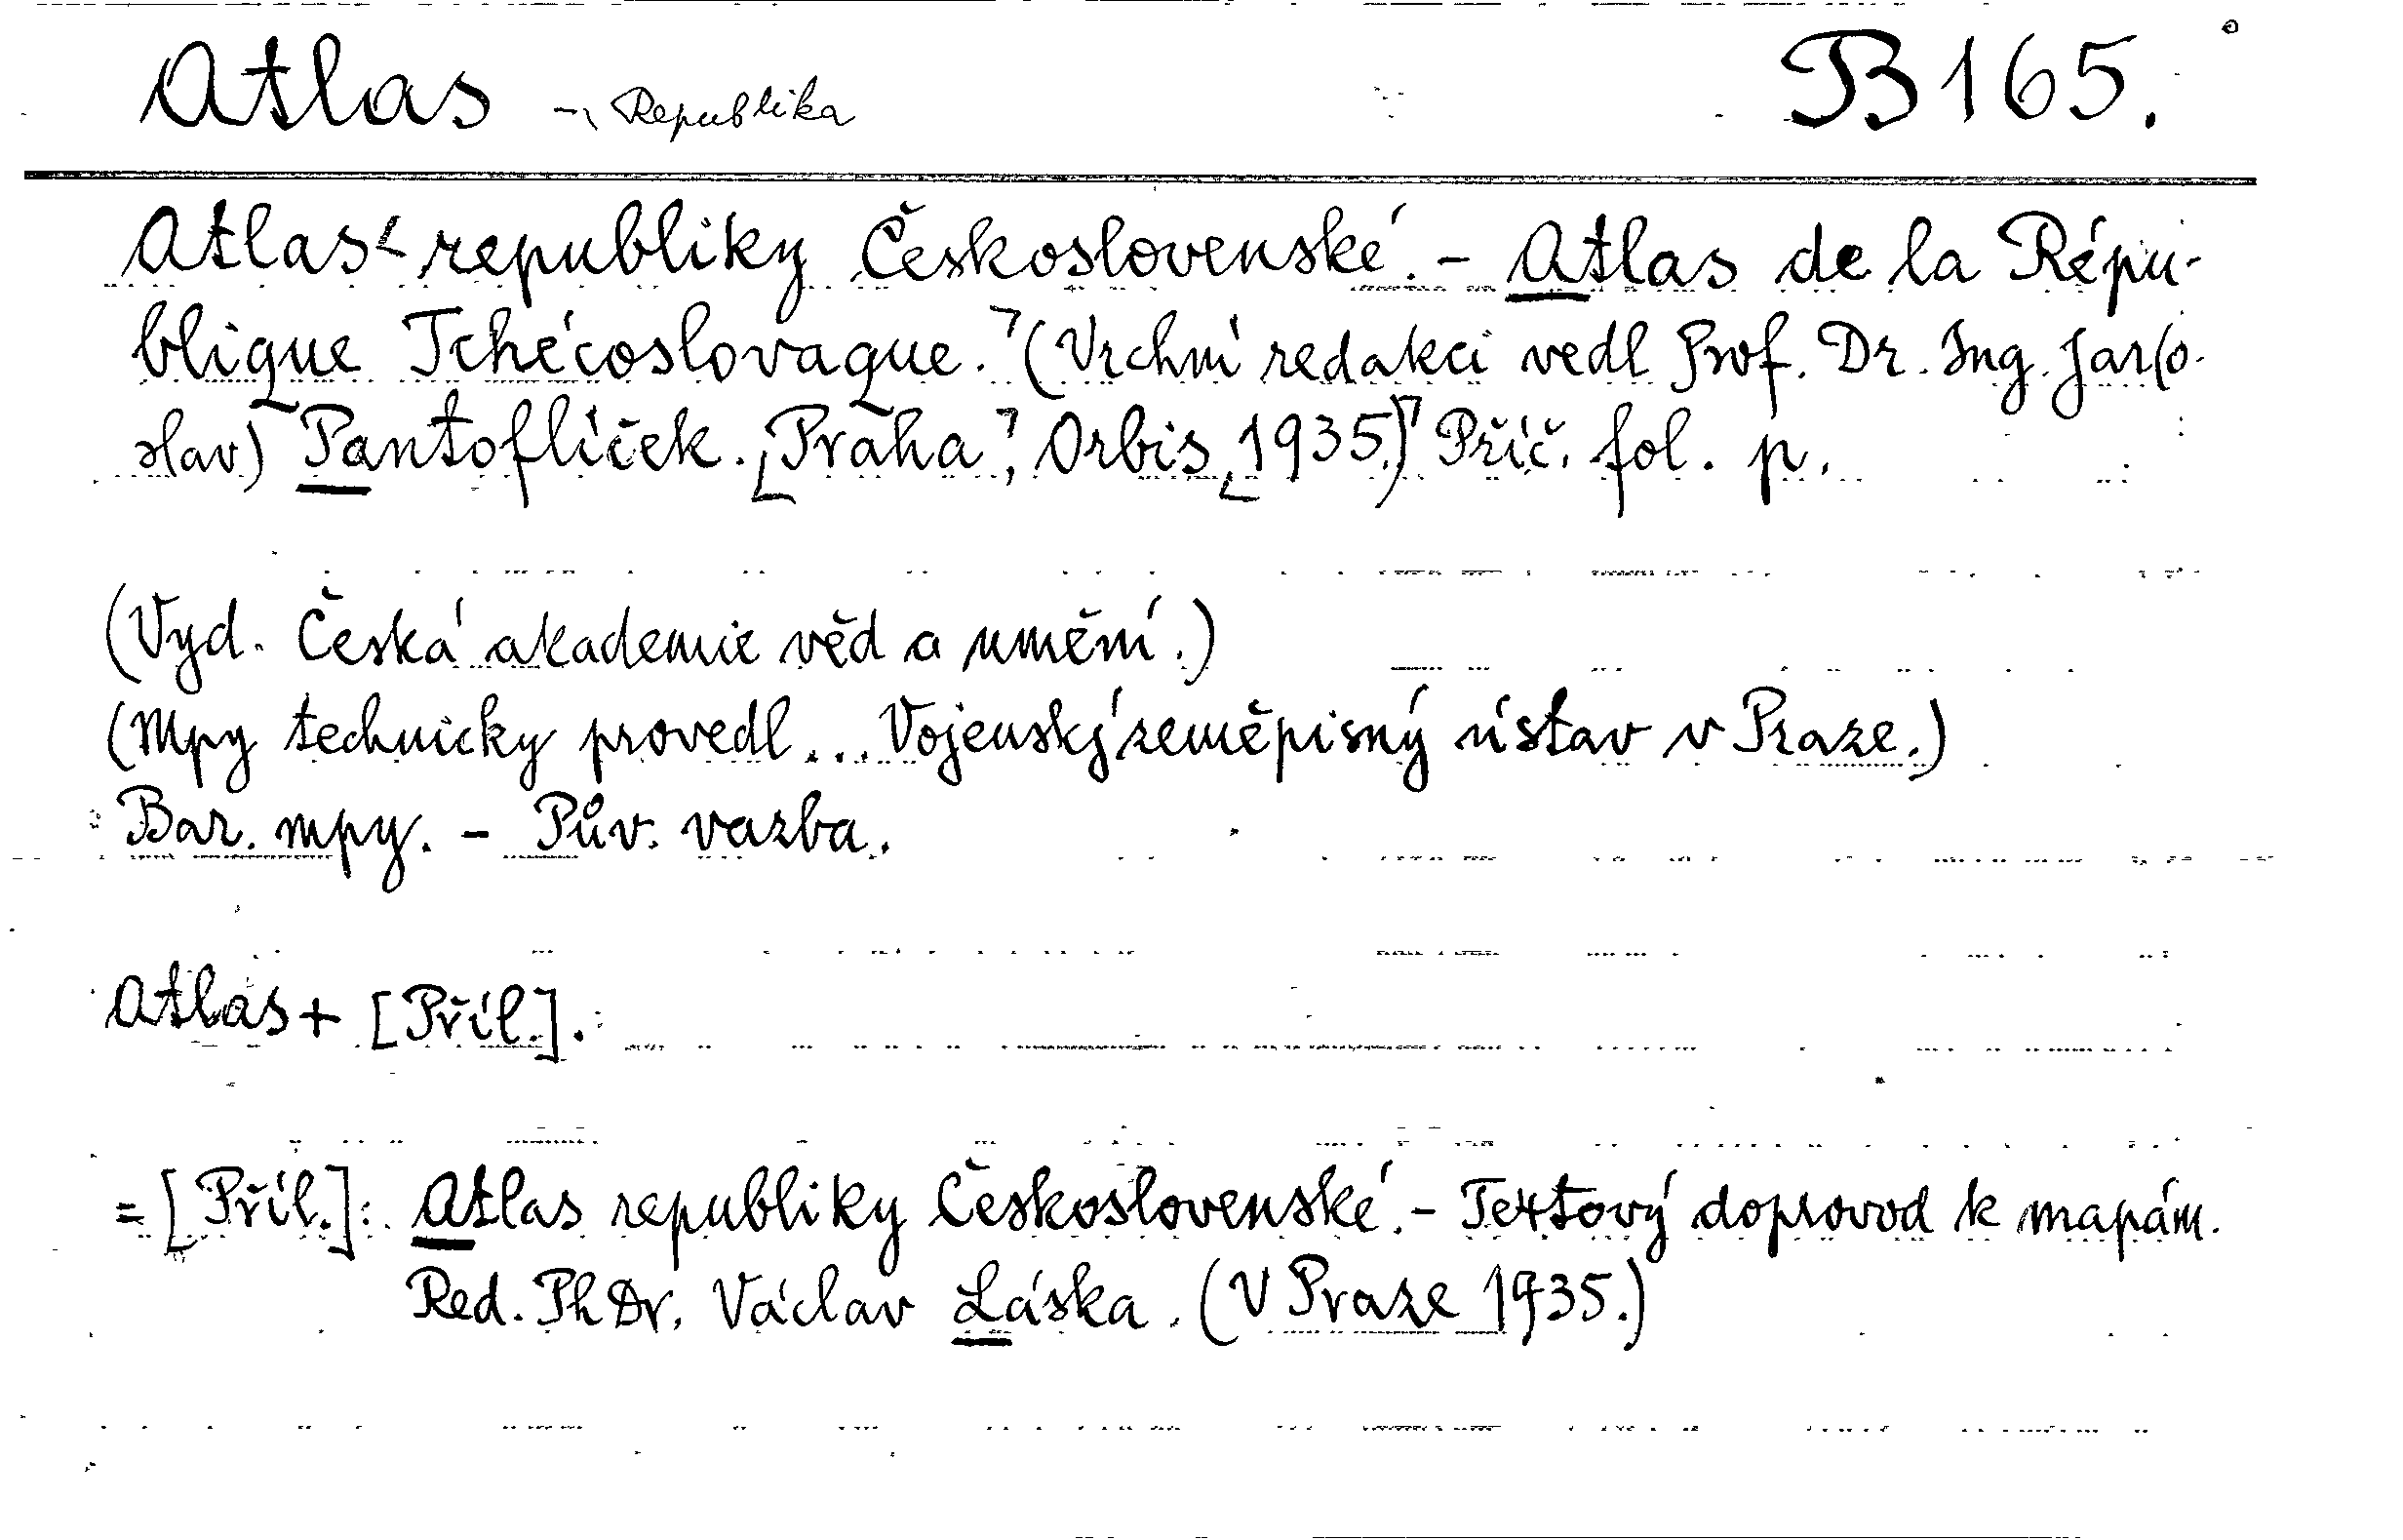 Atlas - Republika B 165.
Atlas republiky Československé. - Atlas de la Répu-
blique Tchécoslovaque. (Vrchní redakci vedl Prof. Dr. Ing. Jar(o-
slav) Pantoflíček. [Praha], Orbis [1935.)] Příč. fol. p.
(Vyd. Česká akademie věd a umění.)
(Mpy technicky provedl... Vojenský zeměpisný ústav v Praze.)
Bar. mpy. - Pův. vazba.
Atlas + [Příl.].
= [Příl.]: Atlas republiky Československé. - Textový doprovod k mapám.
Red. PhDr. Václav Láska. (V Praze 1935.)